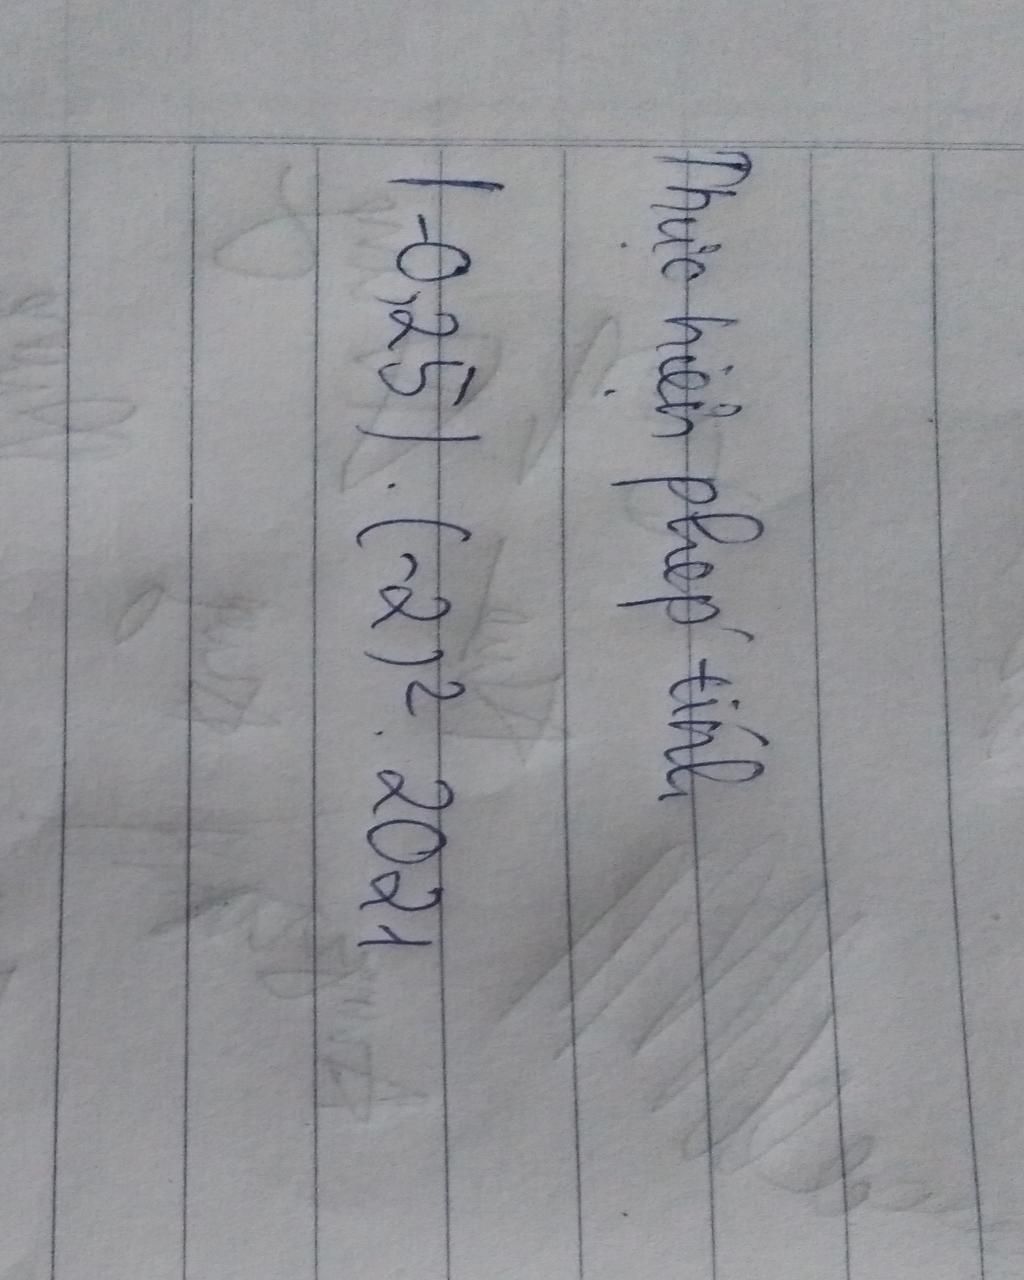 Thực hiện phép tính
|-0,25| . (-2)² . 2021